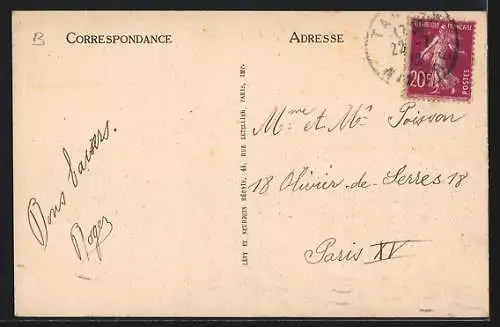 B
CORRESPONDANCE
ADRESSE
RÉPUBLIQUE FRANÇAISE
20c
POSTES
Mme et Mr Poisson
18 Olivier-de-Serres 18
Paris XV
Bons baisers.
Roger
LÉVY ET NEURDEIN RÉUNIS, 44, RUE LETELLIER PARIS, IMP.